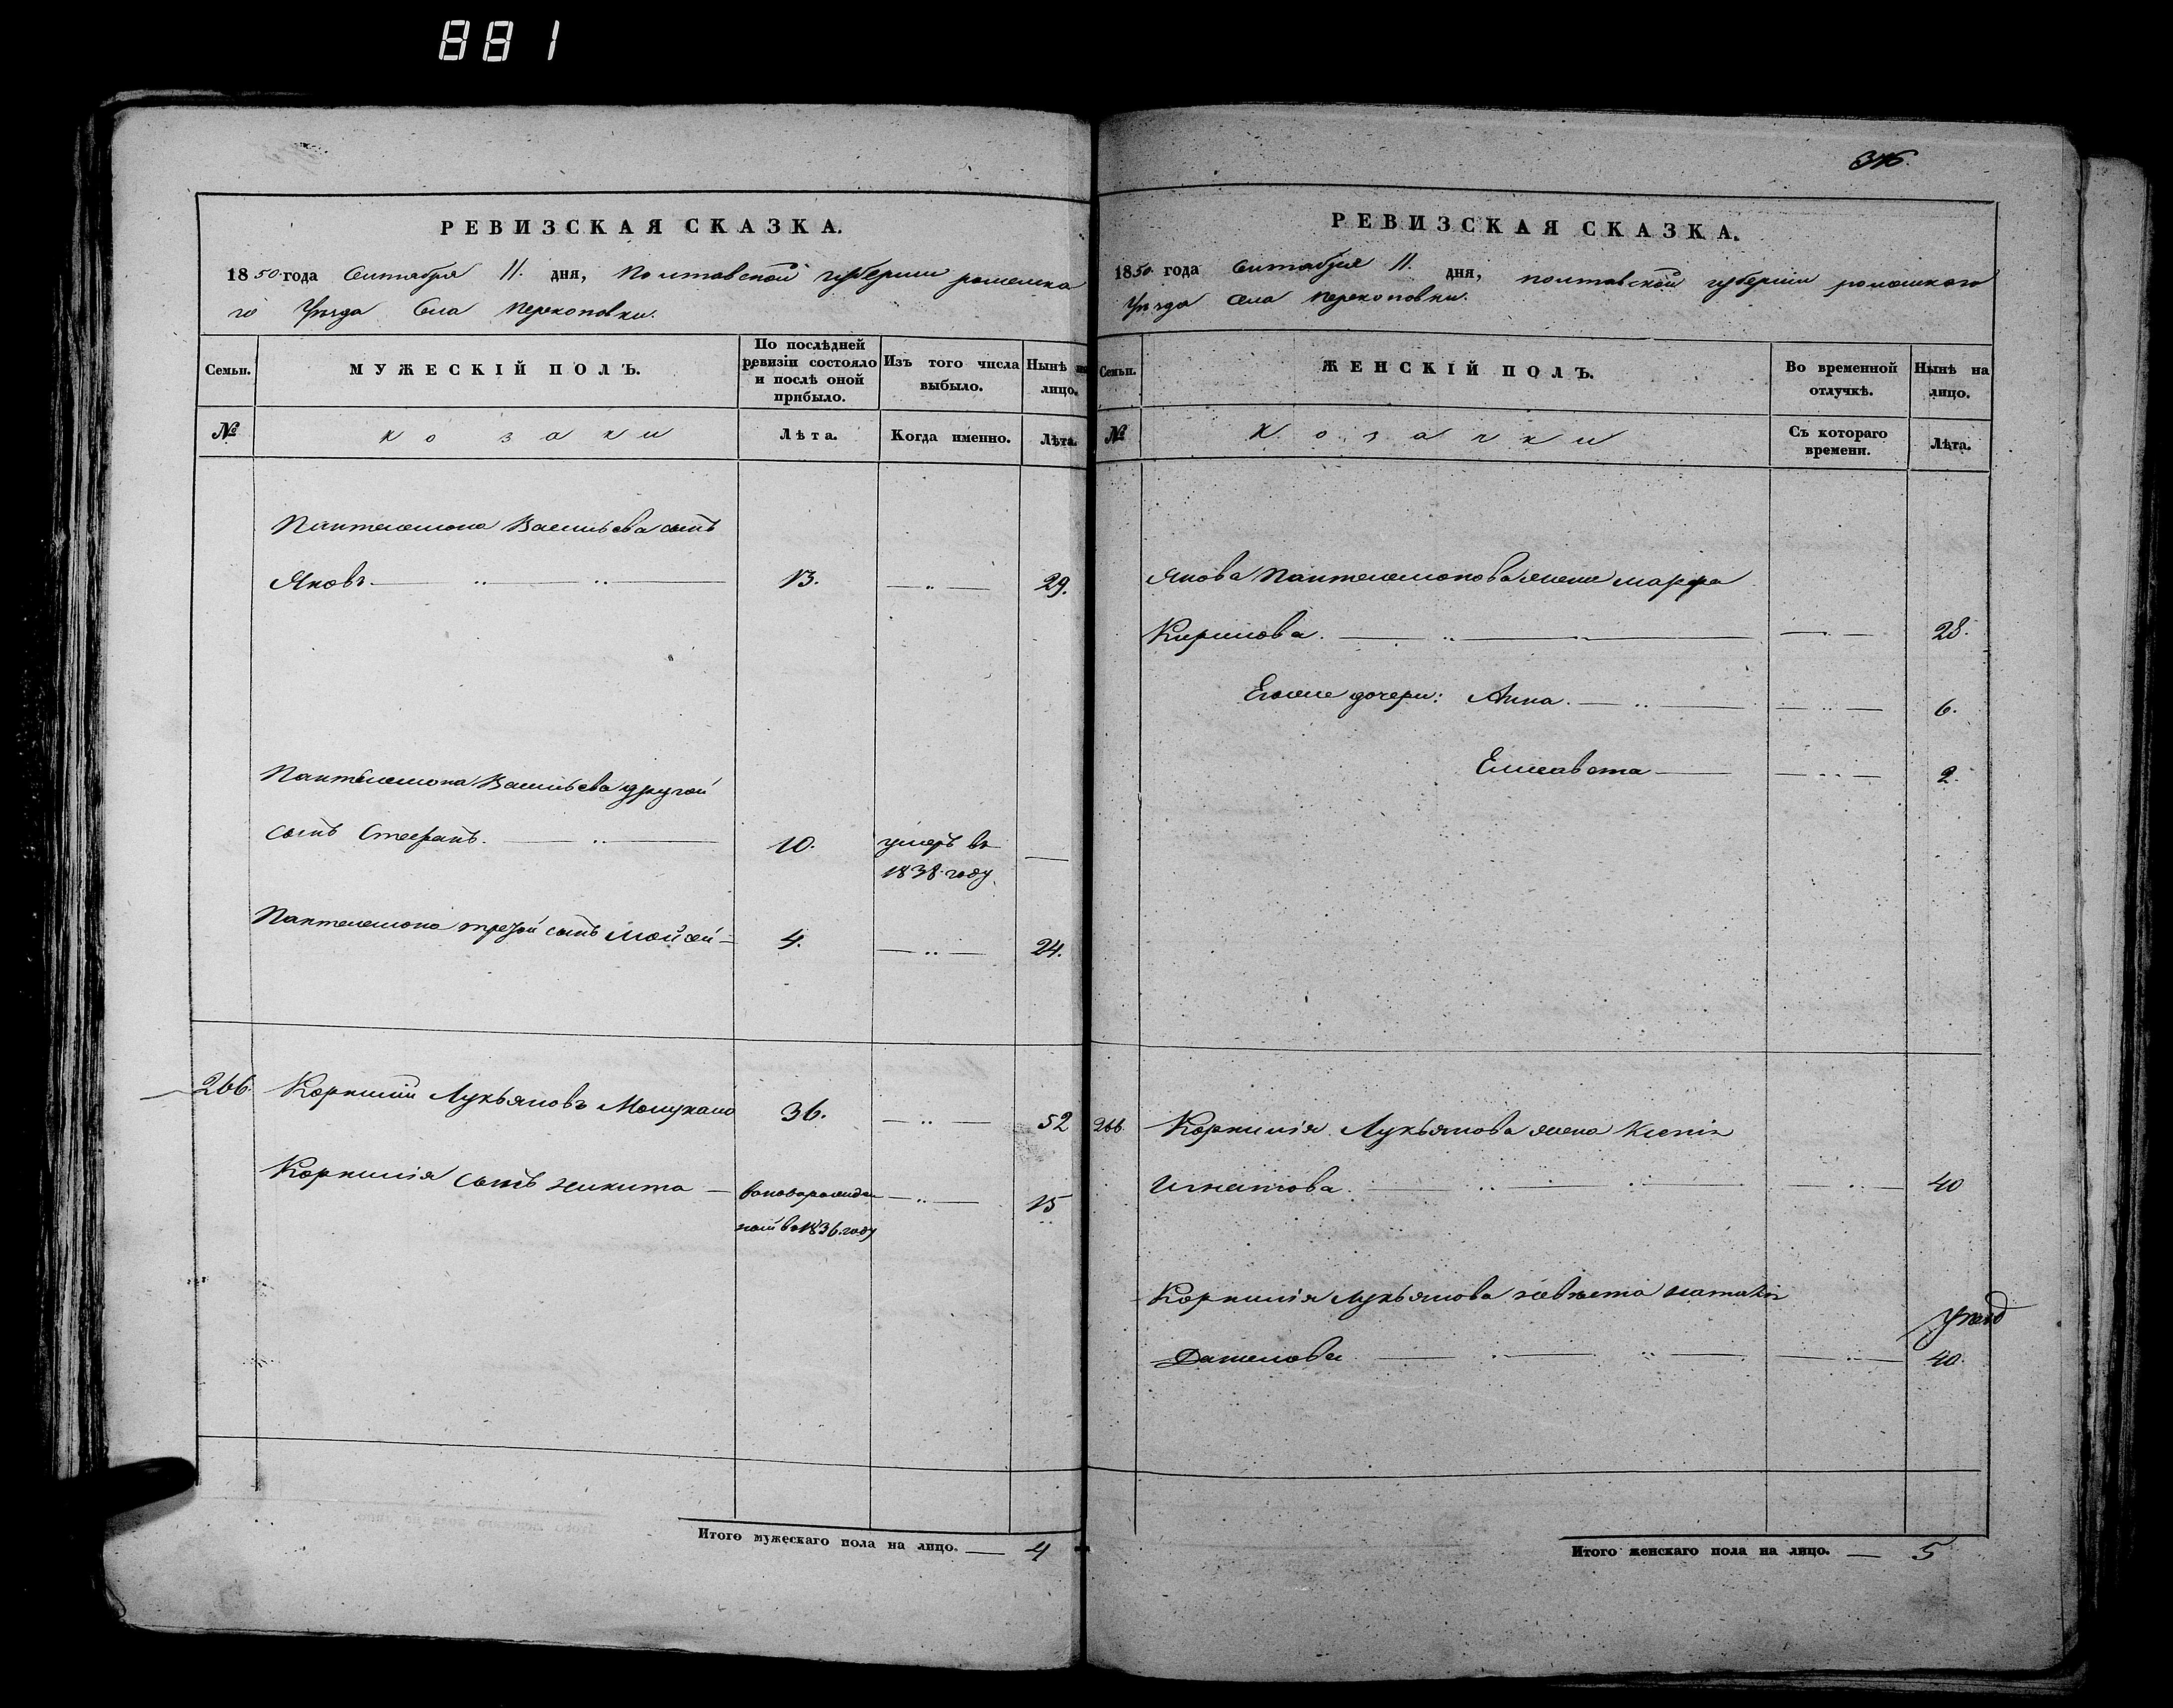 881
РЕВИЗСКАЯ СКАЗКА.
1850 года Сентября 11. дня, Полтавской губернии роменска
го Уезда Села Перекоповки.
Семьи.
МУЖЕСКІЙ ПОЛЪ.
По послѣдней ревизіи состояло и послѣ оной прибыло.
Изъ того числа выбыло.
Нынѣ на лицо.
№
козаки
Лѣта.
Когда именно.
Лѣта.
Пантелемона Васильева сынъ
Яковъ 13. 29.
Пантелемона Васильева другой
сынъ Стефанъ. 10. умеръ въ
1838. году
Пантелемона третой сынъ Мойсей 4. 24.
266. Корнилий Лукьяновъ 36. 52
Корнилія сынъ Никита 15
1836. году
Итого мужескаго пола на лицо. 4
346.
РЕВИЗСКАЯ СКАЗКА.
1850 года Сентября 11. дня, полтавской губерніи роменского
Уезда села Перекоповки.
Семьи.
ЖЕНСКІЙ ПОЛЪ.
Во временной отлучкѣ.
Нынѣ на лицо.
№
Козачки
Съ котораго времени.
Лѣта.
Якова Пантелемонова жена марфа
Кирилова. 28.
Егоже дочери: Анна. 6.
Елисавета 2.
266. Корнилія Лукьянова жена Ксенія
Игнатова. 40
Корнилія Лукьянова невѣста
Данилова 40.
Итого женскаго пола на лицо. 5